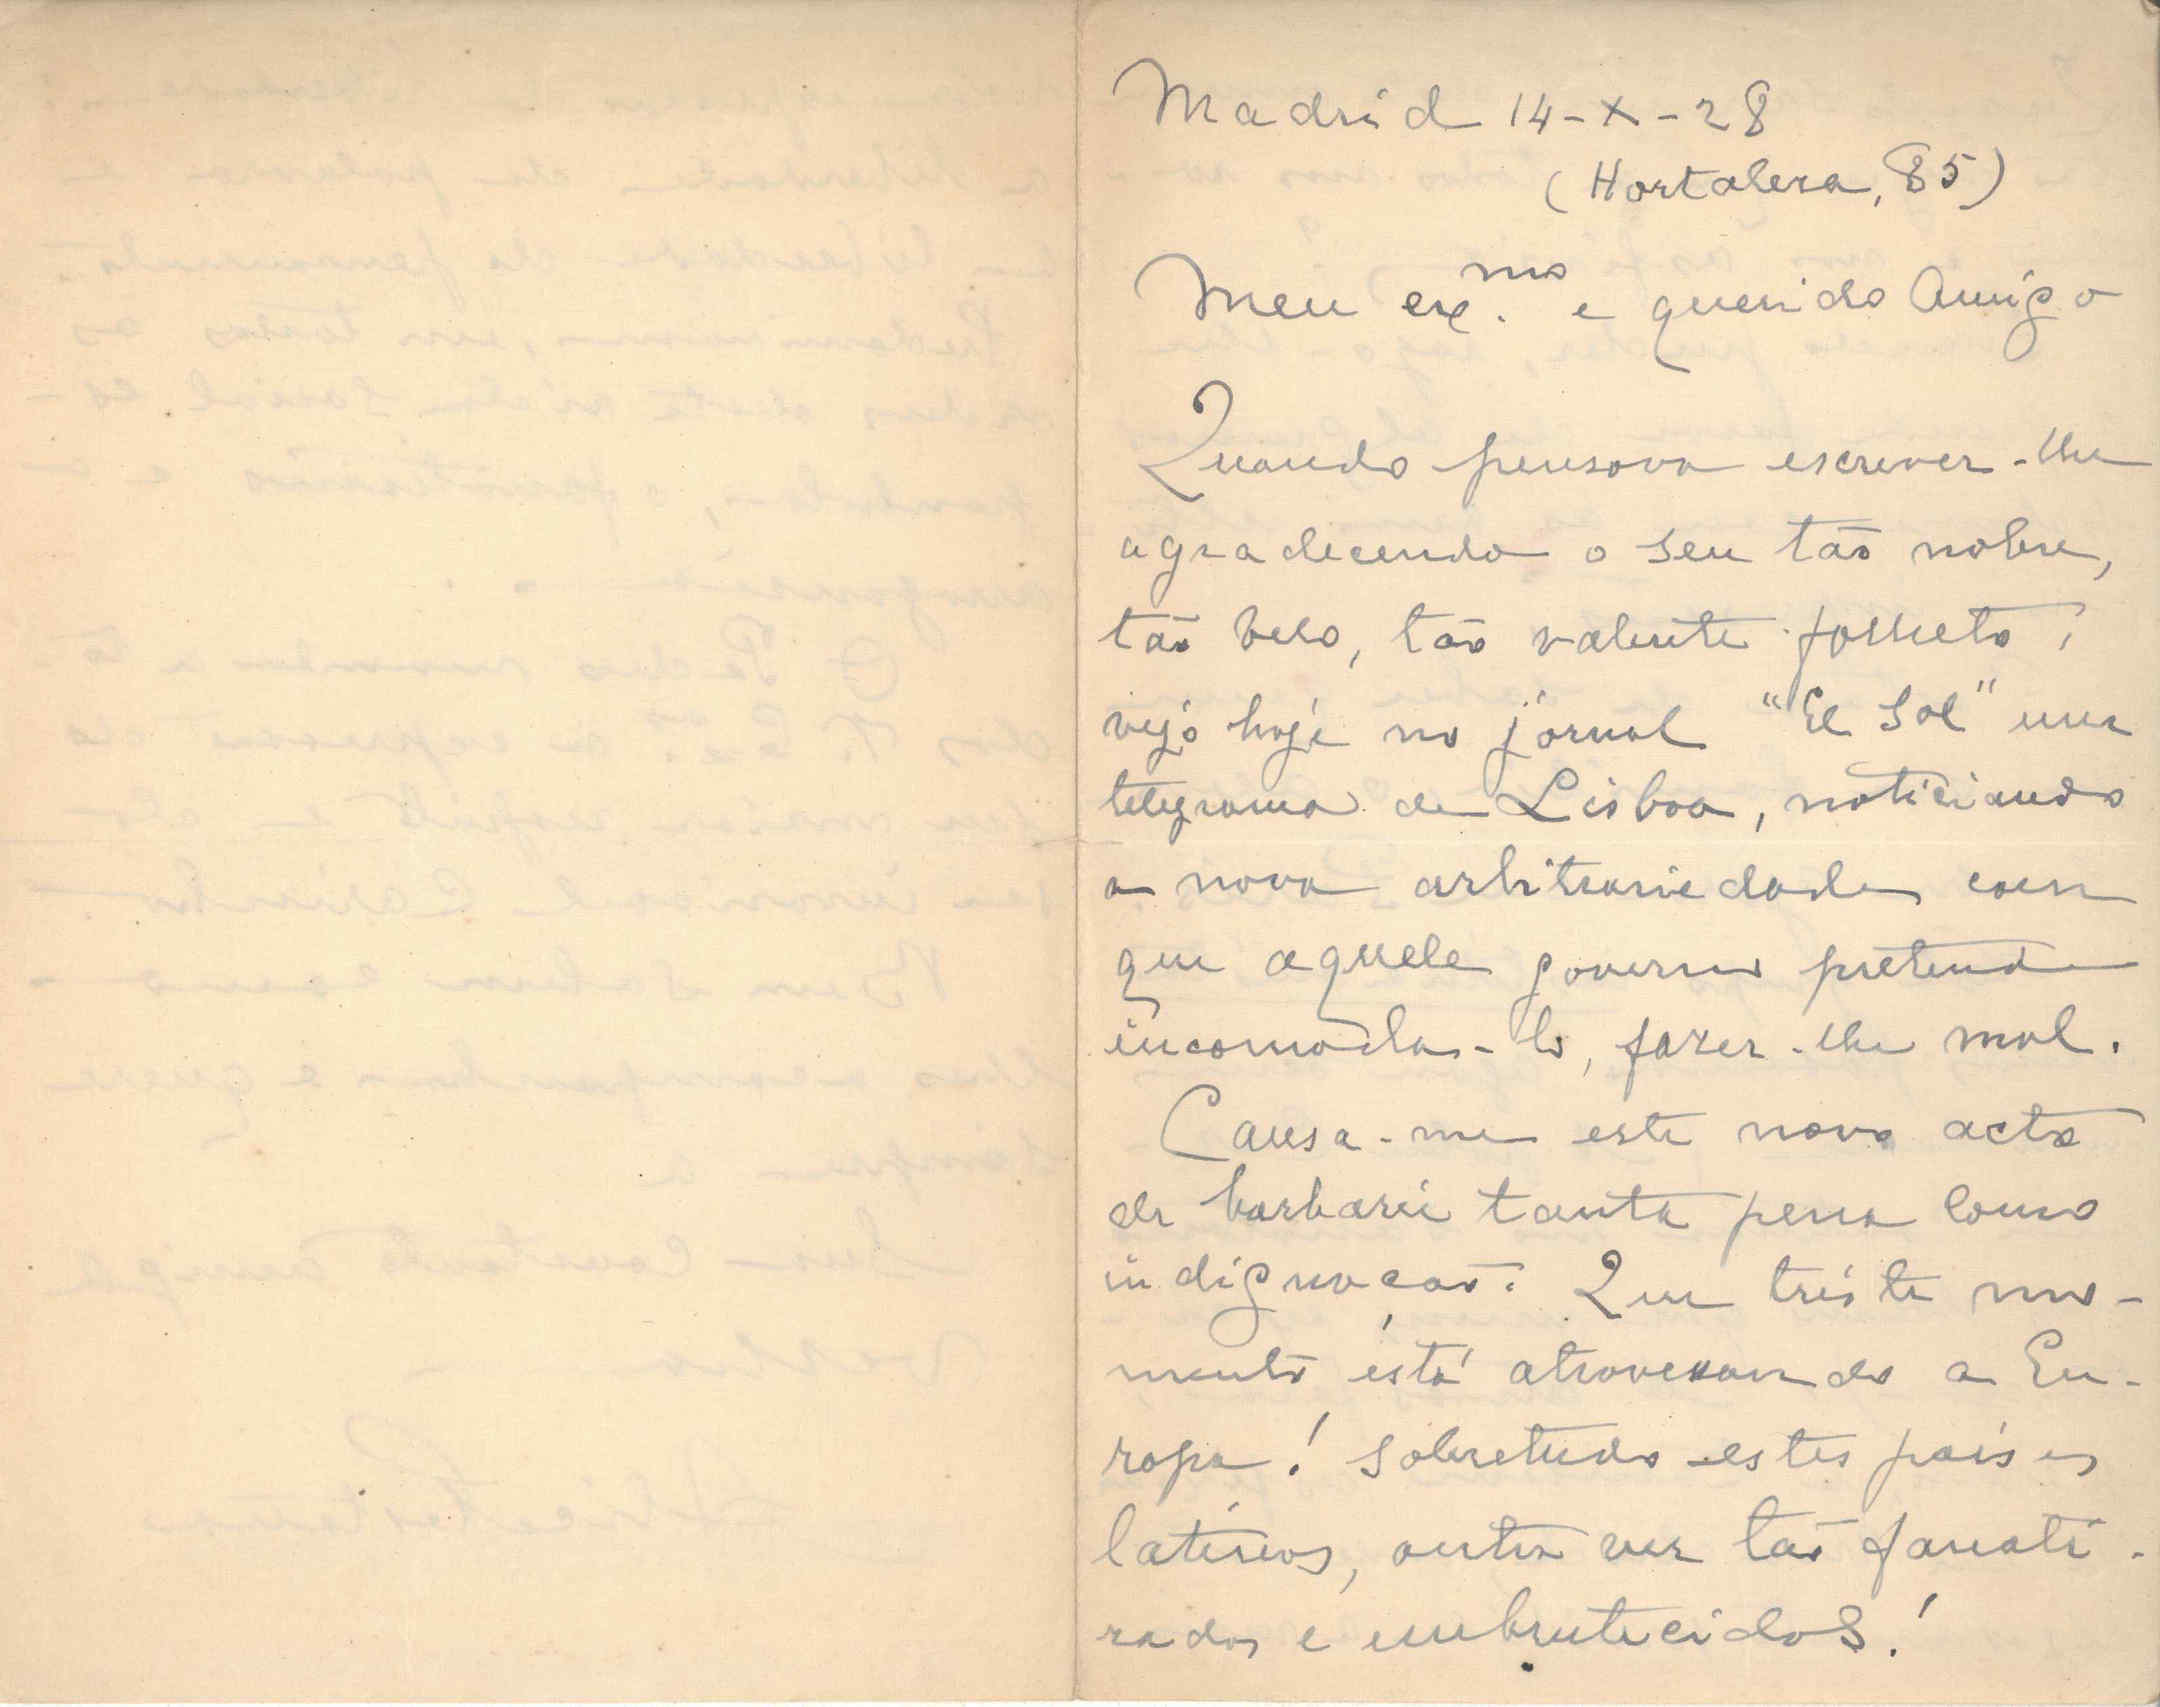 Madrid 14-X-28
(Hortaleza, 85)
Meu ex.mo e querido Amigo
Quando pensava escrever-lhe
agradecendo o seu tão nobre,
tão belo, tão valente folheto,
vejo hoje no jornal "El Sol" um
telegrama de Lisboa, noticiando
a nova arbitrariedade com
que aquele governo pretende
incomoda-lo, fazer-lhe mal.
Causa-me este novo acto
de barbarie tanta pena como
indignação. Que triste mo-
mento está atravessando a Eu-
ropa! Sobretudo estes paises
latinos, outra vez tão fanati-
zados e embrutecidos!